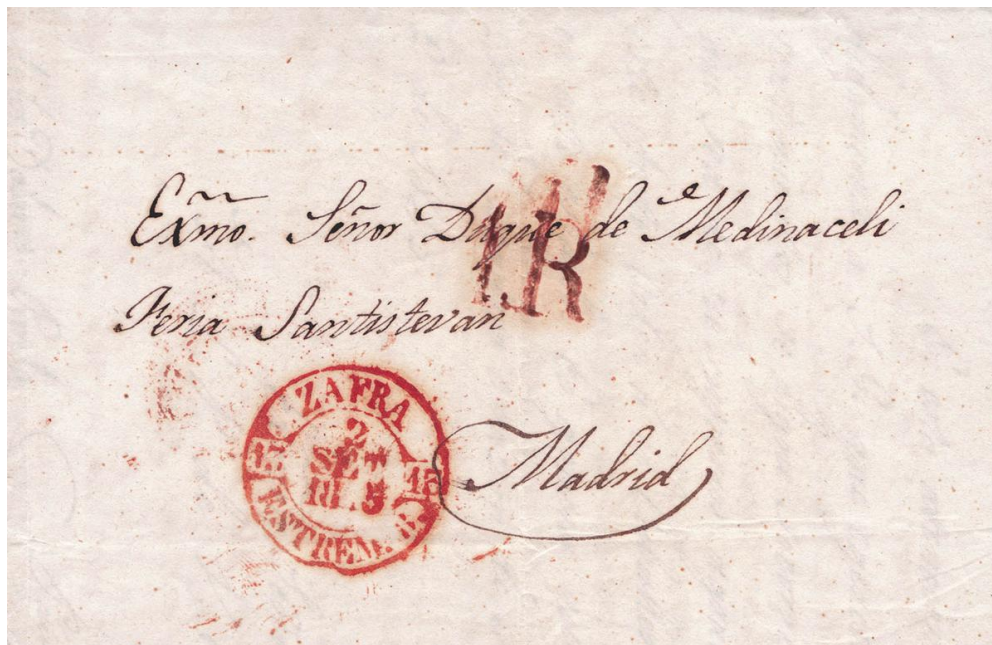 Exmo. Señor Duque de Medinaceli
1R
Feria Santistevan
ZAFRA
2
SET
15 15
ESTREM. B.
Madrid